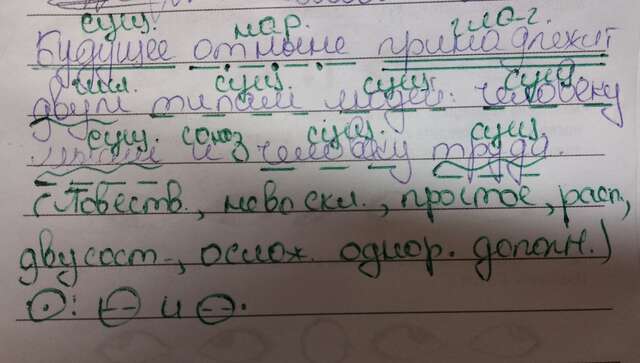 сущ. нар. глаг.
Будущее отныне принадлежит
числ. сущ. сущ. сущ.
двум типам людей: человеку
сущ. союз сущ. сущ.
мысли и человеку труда.
(Повеств., невоскл., простое, расп.,
двусост., ослож. однор. дополн.)